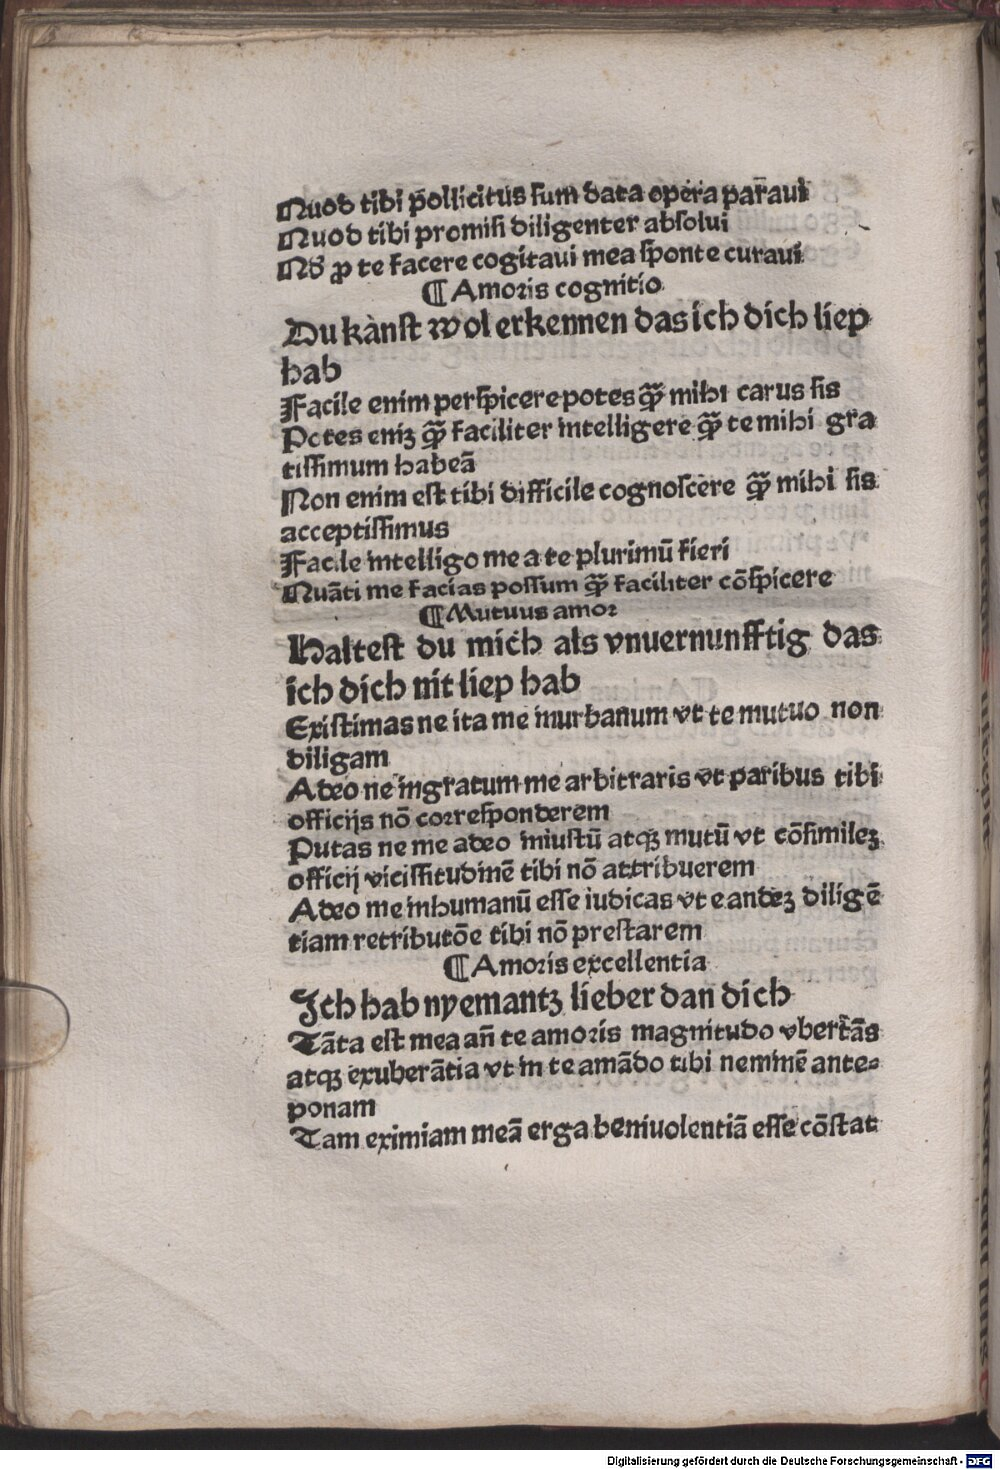 Quod tibi p̄ollicitus sum data opera par̄aui
Quod tibi promisi diligenter absolui
Qd̓ ꝓ te facere cogitaui mea sponte curaui
¶ Amoris cognitio
Du kanst wol erkennen das ich dich liep
hab
Facile enim perspicere potes qꝫ̃ mihi carus sis
Potes eniꝫ qꝫ̃ faciliter intelligere qꝫ̃ te mihi gra
tissimum habeā
Non enim est tibi difficile cognoscere qꝫ̃ mihi sis
acceptissimus
Facile intelligo me a te plurimū fieri
Quāti me facias possum qꝫ̃ faciliter cōspicere
¶ Mutuus amor
Haltest du mich als vnuernunfftig das
ich dich nit liep hab
Existimas ne ita me inurbanum vt te mutuo non
diligam
Adeo ne ingratum me arbitraris vt paribus tibi
officijs nō corresponderem
Putas ne me adeo iniustū atqꝫ mutū vt cōsimileꝫ
officij vicissitudinē tibi nō attribuerem
Adeo me inhumanū esse iudicas vt eandeꝫ diligē
tiam retributōe tibi nō prestarem
¶ Amoris excellentia
Ich hab nyemantꝫ lieber dan dich
Tāta est mea an̄ te amoris magnitudo vbertās
atqꝫ exuberātia vt in te amādo tibi neminē ante⸗
ponam
Tam eximiam meā erga beniuolentiā esse cōstat
Digitalisierung gefördert durch die Deutsche Forschungsgemeinschaft - DFG